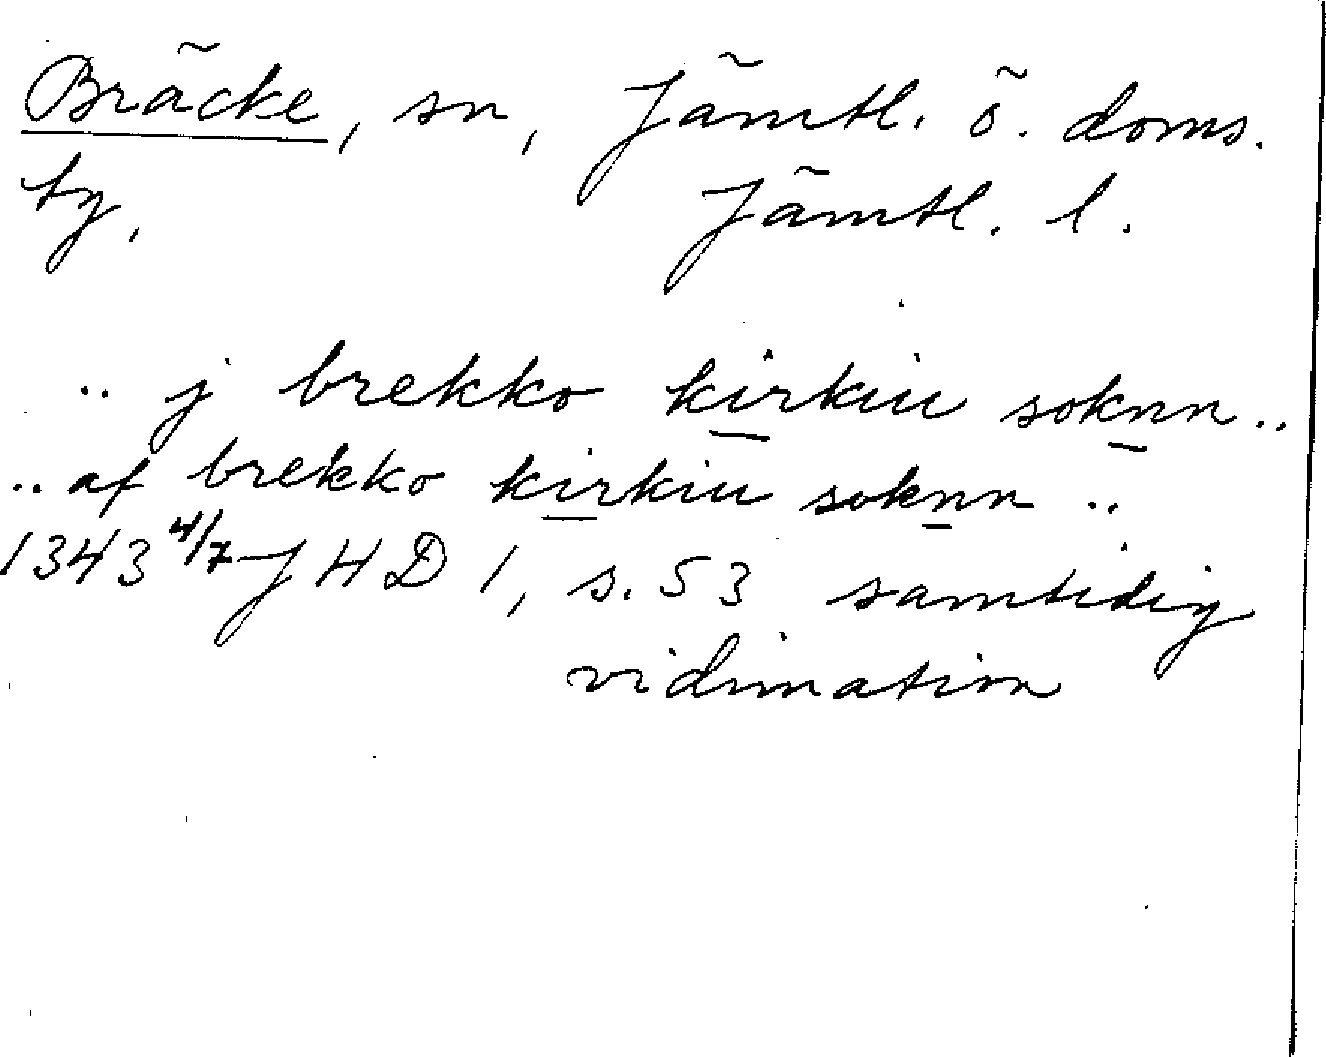 Bräcke, sn, Jämtl. ö. doms.
ty, Jämtl. l.
.. j brekko kirkiu soknn ..
.. af brekko kirkiu soknn ..
1343 4/7 JHD 1, s. 53 samtidig
vidimation